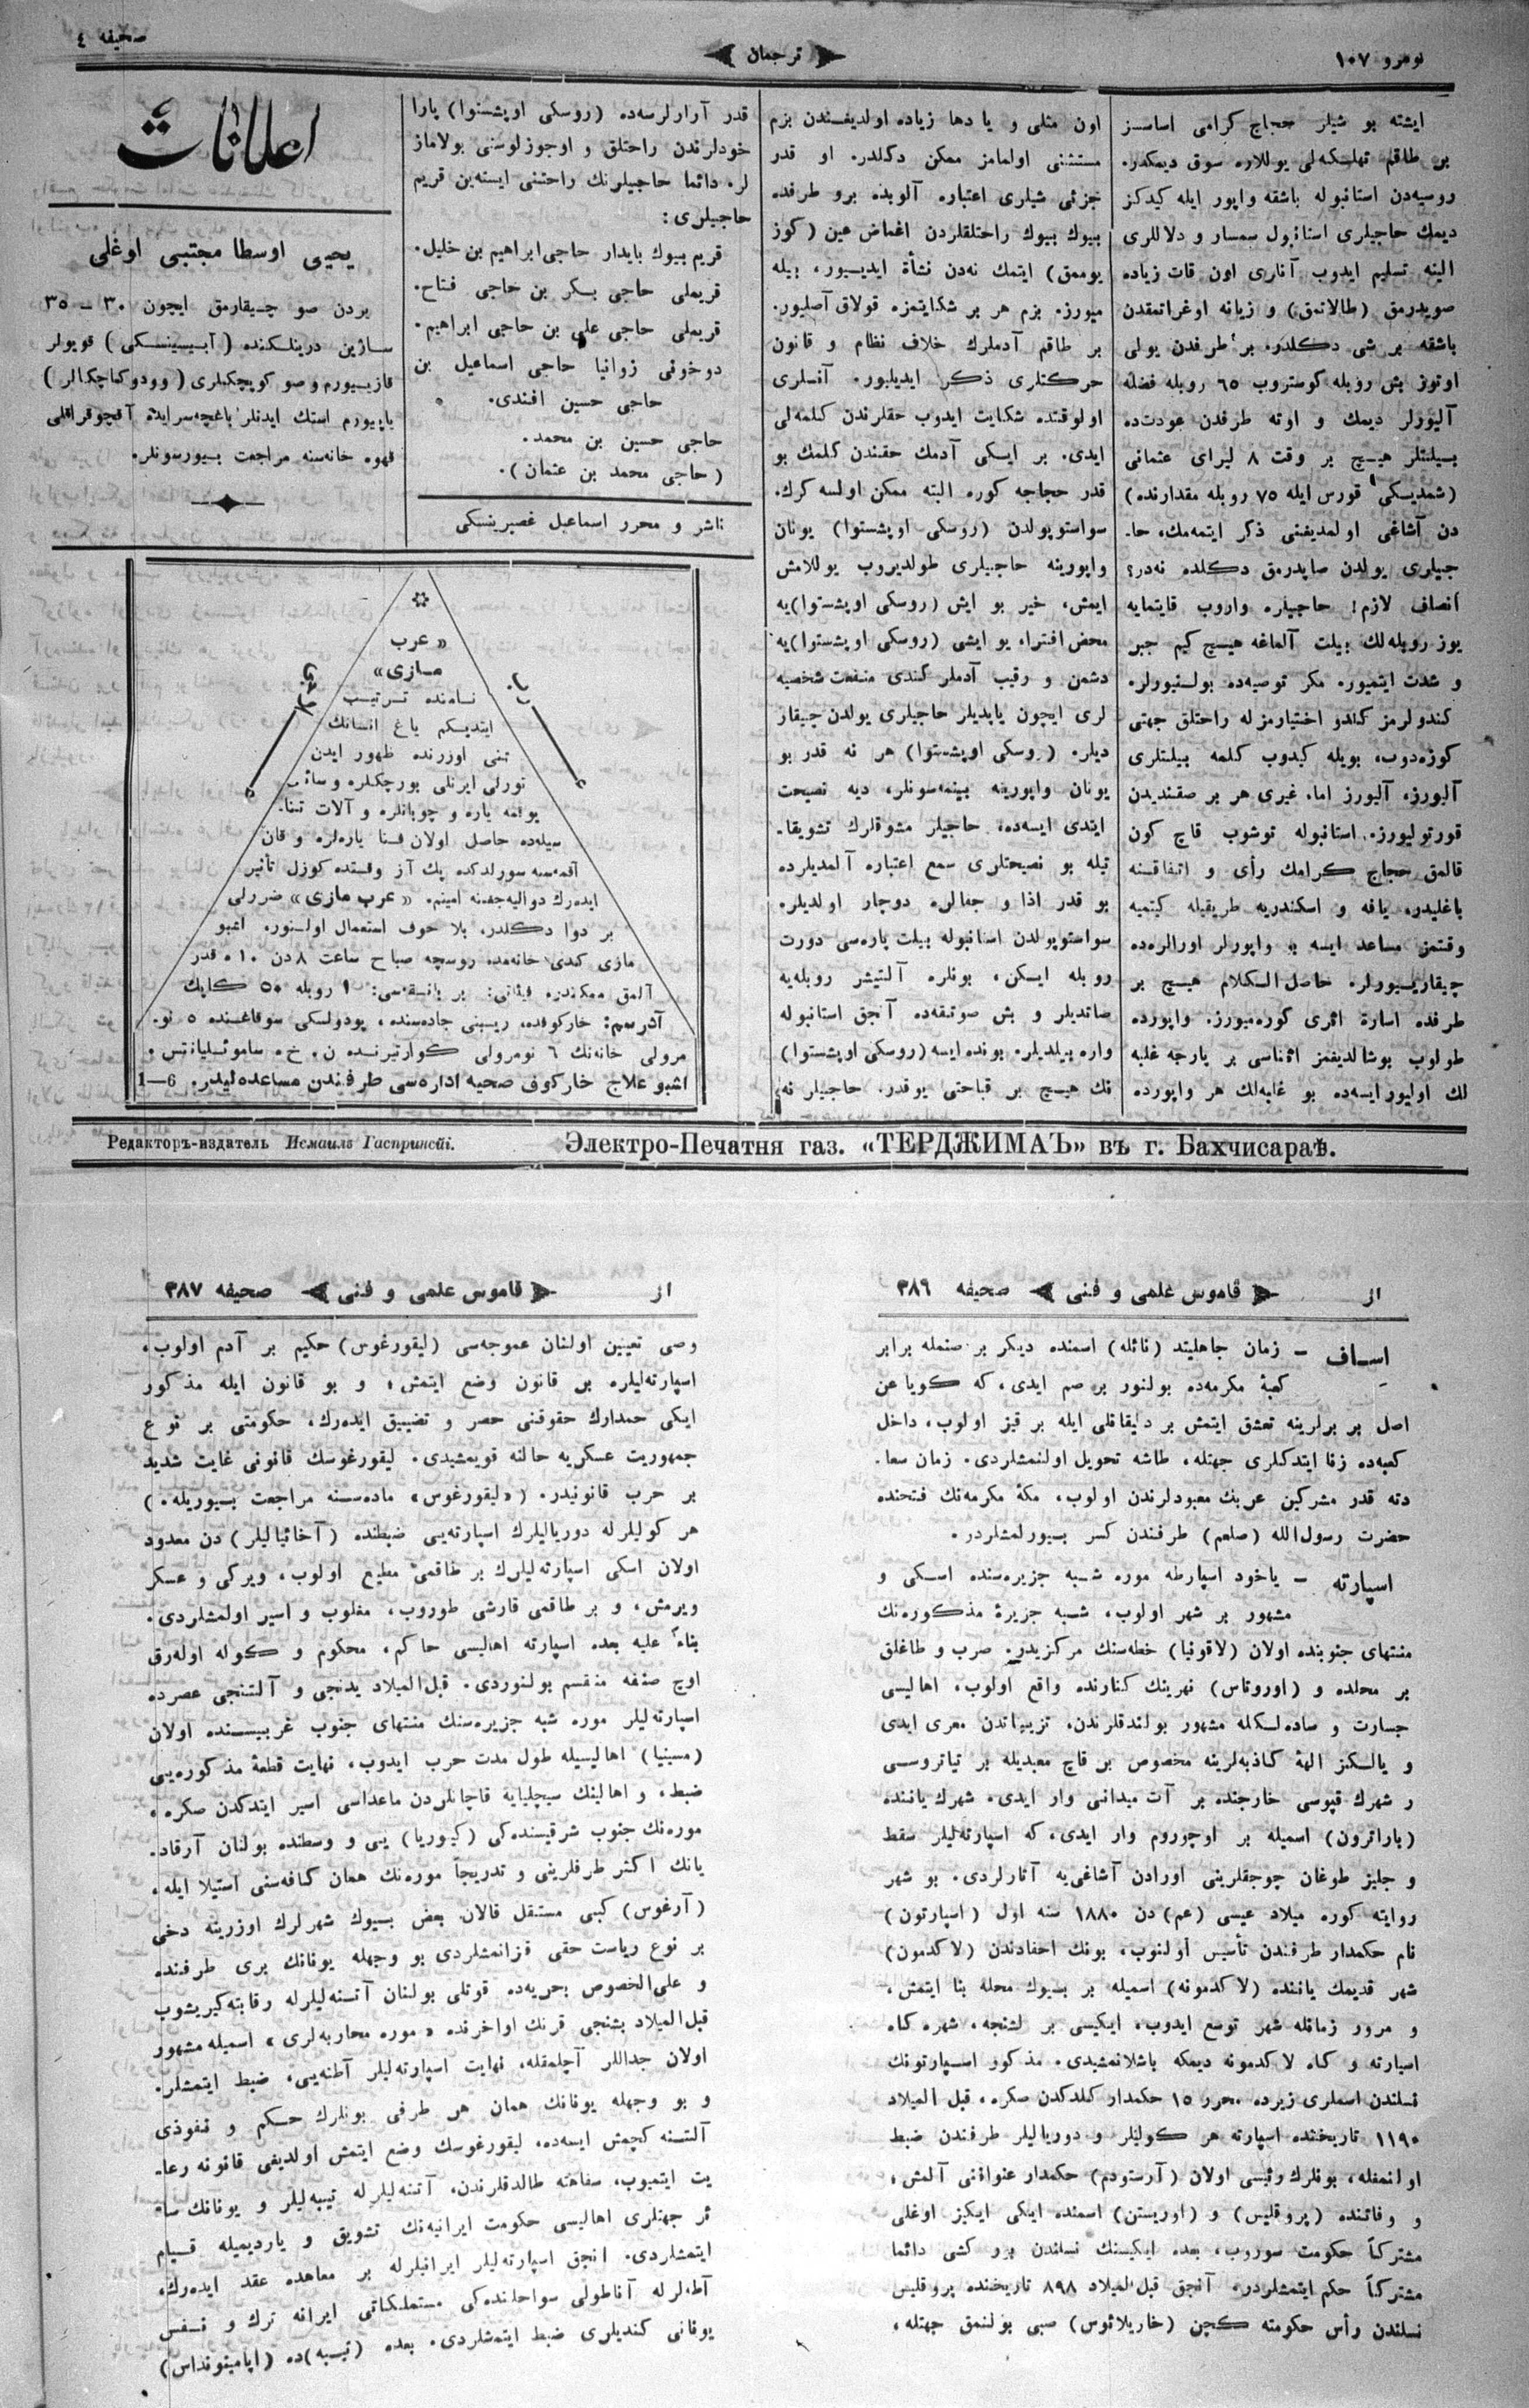 نومرو ١٠٧
ترجمان
صحيفه ٤
ايشته بو شيلر حجاج كرامى اساسسز
بر طاقم تهلكه‌لى يوللاره سوق ديمكدر.
روسيه‌دن استانبوله باشقه واپور ايله كيدكز
ديمك حاجيلرى استانبول سمسار و دلاللرى
الينه تسليم ايدوب آنلرى اون قات زياده
صويدرمق (طالاتمق) و زيانه اوغراتمقدن
باشقه بر شى دكلدر. بر طرفدن يولى
اوتوز بش روبله كوستروب ٦٥ روبله فضله
آليورلر ديمك و اوته طرفدن عودتده
بيلتلر هيچ بر وقت ٨ ليراى عثمانى
(شمديكى قورس ايله ٧٥ روبله مقدارنده)
دن آشاغى اولمديغنى ذكر ايتمه‌مك، حا-
جيلرى يولدن صاپدرمق دكلده نه‌در؟
انصاف لازم! حاجيلره واروب قايتمايه
يوز روبله‌لك بيلت آلماغه هيچ كيم جبر
و شدت ايتميور. مكر توصيه‌ده بولنيورلر.
كندولرمز كندو اختيارمزله راحتلق جهتى
كوزه‌دوب، بويله كيدوب كلمه بيلتلرى
آليورز، آليورز اما، غيرى هر بر صقنديدن
قورتوليورز. استانبوله توشوب قاچ كون
قالمق حجاج كرامك رأى و اتفاقنه
باغليدر، يافه و اسكندريه طريقيله كيتميه
وقتمز مساعد ايسه بو واپورلر اورالره‌ده
چيقاريورلر. حاصل الكلام هيچ بر
طرفده اسارة اثرى كورميورز. واپورده
طولوب بوشالديغمز اثناسى بر پارچه غلبه
لك اوليور ايسه‌ده بو غلبه‌لك هر واپورده
اون مثلى و يا دها زياده اولديغندن بزم
مستثنى اولمامز ممكن دكلدر. او قدر
جزئى شيلرى اعتباره آلوبده برو طرفده
بيوك بيوك راحتلقلردن اغماض عين (كوز
يوممق) ايتمك نه‌دن نشأة ايديور، بيله
ميورز. بزم هر بر شكايتمزه قولاق آصليور.
بر طاقم آدملرك خلاف نظام و قانون
حركتلرى ذكر ايديليور. آفسلرى
اولوقتده شكايت ايدوب حقلرندن كلمه‌لى
ايدى. بر ايكى آدمك حقندن كلمك بو
قدر حجاجه كوره البته ممكن اولسه كرك.
سواستوپولدن (روسكى اوپشستوا) يونان
واپورينه حاجيلرى طولديروب يوللامش
ايمش، خير بو ايش (روسكى اوپشستوا)يه
محض افترا، بو ايشى (روسكى اوپشستوا)يه
دشمن و رقيب آدملر كندى منفعت شخصيه
لرى ايچون ياپديلر حاجيلرى يولدن چيقار
ديلر. (روسكى اوپشستوا) هر نه قدر بو
يونان واپورينه بينمه‌سونلر، ديه نصيحت
ايتدى ايسه‌ده، حاجيلر مشوقلرك تشويقا-
تيله بو نصيحتلرى سمع اعتباره آلمديلرده
بو قدر اذا و جفالره دوچار اولديلر.
سواستوپولدن استانبوله بيلت پاره‌سى دورت
روبله ايسكن، بونلره آلتيشر روبله‌يه
صاتديلر و بش صوتقه‌ده آنجق استانبوله
واره بيلديلر. بونده ايسه (روسكى اوپشستوا)
نك هيچ بر قباحتى يوقدر. حاجيلر نه
قدر آرارلرسه‌ده (روسكى اوپشستوا) پارا
خودلرندن راحتلق و اوجوزلوسنى بولاماز
لر. دائما حاجيلرنك راحتنى ايسته‌ين قريم
حاجيلرى:
قريم بيوك بايدار حاجى ابراهيم بن خليل.
قريملى حاجى بكر بن حاجى فتاح.
قريملى حاجى على بن حاجى ابراهيم.
دوخوفى زوانيا حاجى اسماعيل بن
حاجى حسين افندى.
حاجى حسين بن محمد.
(حاجى محمد بن عثمان).
ناشر و محرر اسماعيل غصپرينسكى
اعلانات
يحيى اوسطا مجتبى اوغلى
يردن صو چيقارمق ايچون ٣٠ – ٣٥
ساژين درينلكنده (آبيسينسكى) قويولر
قازييورم و صو كوپچكلرى (وودوكاچكالر)
ياپيورم استك ايدنلر باغچه‌سرايده آقچوقراقلى
قهوه خانه‌سنه مراجعت بيورسونلر.
« عرب
مازى»
نامنده ترتيب
ايتديكم ياغ انسانك
تنى اوزرنده ظهور ايدن
تورلى ايرنلى بورچكلره و سائر
يولمه ياره و چوبانلره و آلات تنا-
سيله‌ده حاصل اولان فنا ياره‌لره و قان
آقمه‌سنه سورلدكده پك آز وقتده كوزل تأثير
ايده‌رك دواليه‌جغنه امينم. «عرب مازى» ضررلى
بر دوا دكلدر، بلا خوف استعمال اولنور. اشبو
مازى كندى خانه‌مده روسچه صباح ساعت ٨ دن ١٠ ه قدر
آلمق ممكندره فيئاتى: بر بانقه‌سى: ١ روبله ٥٠ كاپك
آدرسم: خاركوفده، ريبنى جاده‌سنده، پودولسكى سوقاغنده ٥ نو-
مرولى خانه‌نك ٦ نومرولى كوارتيرنده ن. خ. ساموئليانتس.
اشبو علاج خاركوف صحيه اداره‌سى طرفيندن مساعده‌ليدر. 6—1
Редакторъ-издатель Исмаилъ Гаспринскій.
Электро-Печатня газ. «ТЕРДЖИМАЪ» въ г. Бахчисараѣ.
از
قاموس علمى و فنى
صحيفه ٣٨٦
اساف – زمان جاهليتد (نائله) اسمنده ديكر بر صنمله برابر
كعبۀ مكرمه‌ده بولنور بر صم ايدى، كه كويا عن
اصل بر برلرينه تعشق ايتمش بر دليقانلى ايله بر قيز اولوب، داخل
كعبه‌ده زنا ايتدكلرى جهتله، طاشه تحويل اولنمشلردى. زمان سعا-
دته قدر مشركين عربك معبودلرندن اولوب، مكۀ مكرمه‌نك فتحنده
حضرت رسول الله (صلعم) طرفندن كسر بيورلمشلردر.
اسپارته – ياخود اسپارطه موره شبه جزيره‌سنده اسكى و
مشهور بر شهر اولوب، شبه جزيرۀ مذكوره‌نك
منتهاى جنوبنده اولان (لاقونيا) خطه‌سنك مركزيدر. صرب و طاغلق
بر محلده و (اوروتاس) نهرينك كنارنده واقع اولوب، اهاليسى
جسارت و ساده‌لكله مشهور بولندقلرندن، تزييناتدن معرى ايدى
و يالكز الهۀ كاذبه‌لرينه مخصوص بر قاچ معبديله بر تياتروسى
ر شهرك قپوسى خارجنده بر آت ميدانى وار ايدى. شهرك ياننده
(باراثرون) اسميله بر اوچوروم وار ايدى، كه اسپارته‌ليلر سقط
و جليز طوغان چوجقلرينى اورادن آشاغى‌يه آتارلردى. بو شهر
روايته كوره ميلاد عيسى (عم) دن ١٨٨٠ سنه اول (اسپارتون)
نام حكمدار طرفندن تأسيس اولنوب، بونك احفادندن (لاكدمون)
شهر قديمك ياننده (لاكدمونه) اسميله بر بيوك محله بنا ايتمش،
و مرور زمانله شهر توسع ايدوب، ايكيسى بر لشنجه، شهره كاه
اسپارته و كاه لاكدمونه ديمكه باشلانمشيدى. مذكور اسپارتونك
نسلندن اسملرى زيرده محرر ١٥ حكمدار كلدكدن صكره، قبل الميلاد
١١٩٠ تاريخنده اسپارته هر كوليلر و دورياليلر طرفندن ضبط
اولنمغله، بونلرك رئيسى اولان (آرستودم) حكمدار عنواننى آلمش،
و وفاتنده (پروقليس) و (اوريستن) اسمنده ايكى ايكيز اوغلى
مشتركاً حكومت سوروب، بعده ايكيسنك نسلندن برر كشى دائما
مشتركاً حكم ايتمشلردر. آنجق قبل الميلاد ٨٩٨ تاريخنده پروقليس
نسلندن رأس حكومته كچن (خاريلائوس) صبى بولنمق جهتله،
از
قاموس علمى و فنى
صحيفه ٣٨٧
وصى تعيين اولنان عموجه‌سى (ليقورغوس) حكيم بر آدم اولوب،
اسپارته‌ليلره بر قانون وضع ايتمش، و بو قانون ايله مذكور
ايكى حكمدارك حقوقنى حصر و تضييق ايده‌رك، حكومتى بر نوع
جمهوريت عسكريه حالنه قويمشيدى. ليقورغوسك قانونى غايت شديد
بر حرب قانونيدر. («ليقورغوس» ماده‌سنه مراجعت بيوريله.)
هر كوليلر له دورياليلرك اسپارته‌يى ضبطنده (آخائياليلر) دن معدود
اولان اسكى اسپارته‌ليلرك بر طاقمى مطيع اولوب، ويركى و عسكر
ويرمش، و بر طاقمى قارشى طوروب، مغلوب و اسير اولمشلردى.
بناءً عليه بعده اسپارته اهاليسى حاكم، محكوم و كوله اوله‌رق
اوچ صنفه منقسم بولنوردى. قبل الميلاد يدنجى و آلتنجى عصرده
اسپارته‌ليلر موره شبه جزيره‌سنك منتهاى جنوب غربيسنده اولان
(مسينيا) اهاليسيله طول مدت حرب ايدوب، نهايت قطعۀ مذكوره‌يى
ضبط، و اهالينك سيچليايه قاچانلردن ماعداسى اسير ايتدكدن صكره،
موره‌نك جنوب شرقيسنده‌كى (كينوريا) يى و وسطنده بولنان آرقاد-
يانك اكثر طرفلرينى و تدريجاً موره‌نك همان كافه‌سنى استيلا ايله،
(آرغوس) كبى مستقل قالان بعض بيوك شهرلرك اوزرينه دخى
بر نوع رياست حقى قزانمشلردى بو وجهله يونانك برى طرفنده
و على الخصوص بحريه‌ده قوتلى بولنان آتنه‌ليلرله رقابته كيريشوب
قبل الميلاد بشنجى قرنك اواخرنده «موره محاربه‌لرى» اسميله مشهور
اولان جداللر آچلمغله، نهايت اسپارته‌ليلر آطنه‌يى، ضبط ايتمشلر.
و بو وجهله يونانك همان هر طرفى بونلرك حكم و نفوذى
آلتنه كچمش ايسه‌ده، ليقورغوسك وضع ايتمش اولديغى قانونه رعا-
يت ايتميوب، سفاهته طالدقلرندن، آتنه‌ليلر له تيبه‌ليلر و يونانك سا-
ئر جهتلرى اهاليسى حكومت ايرانيه‌نك تشويق و يارديميله قيام
ايتمشلردى. انجق اسپارته‌ليلر ايرانيلرله بر معاهده عقد ايده‌رك،
آطه‌لر له آناطولى سواحلنده‌كى مستملكاتى ايرانه ترك و نفس
يونانى كنديلرى ضبط ايتمشلردى. بعده (تيبه)ده (اپامينونداس)